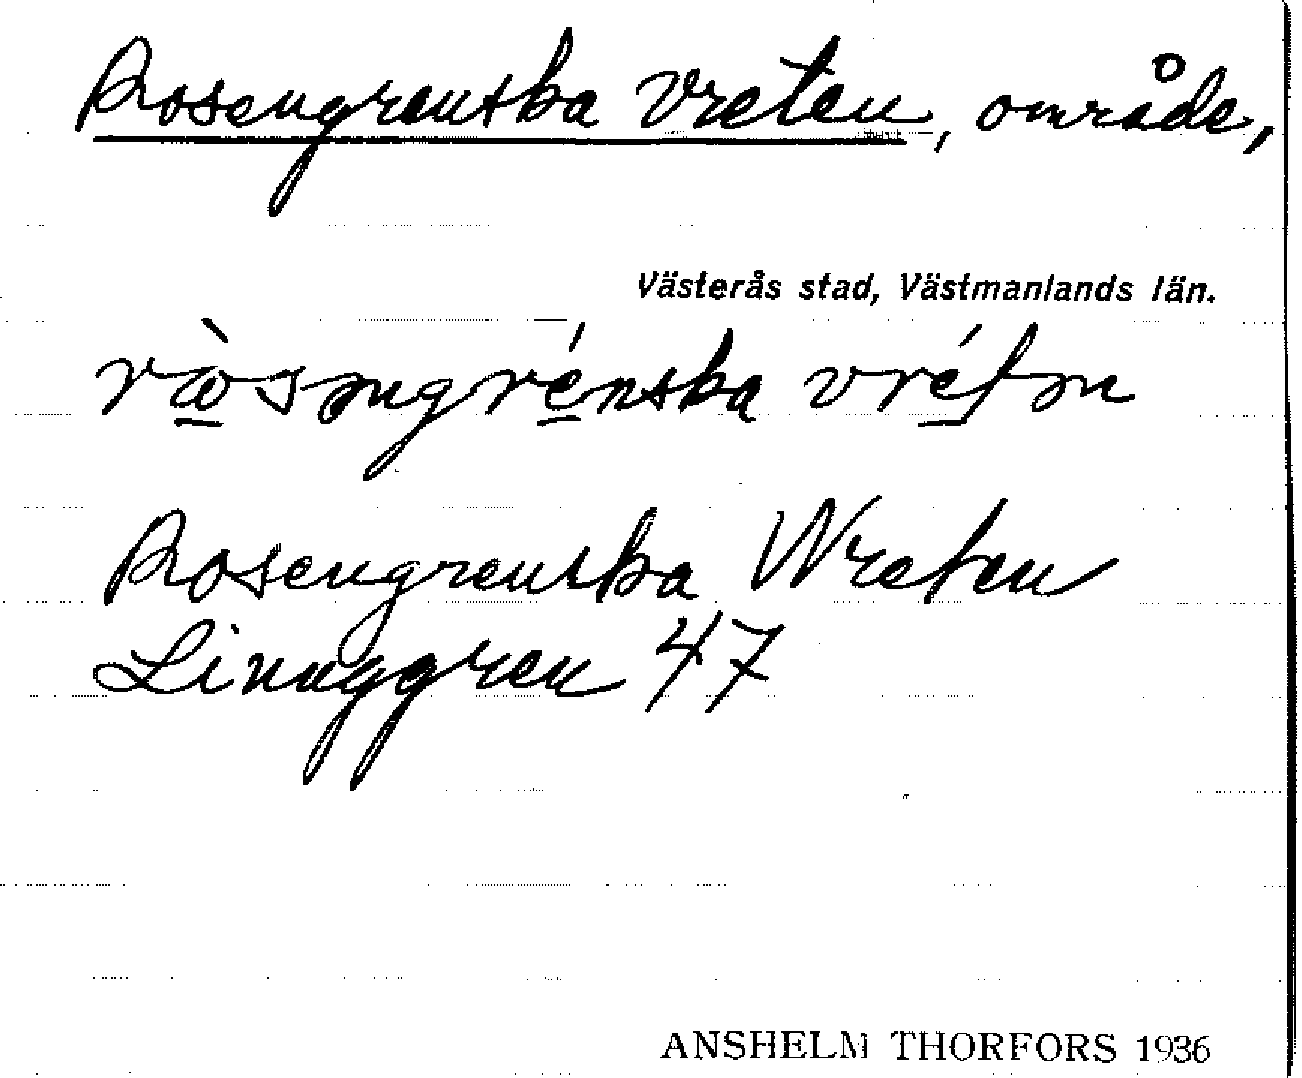 Rosengrenska Vreten, område,
Västerås stad, Västmanlands län.
ròsəngrénska vrétən
Rosengrenska Wreten
Linnggren 47
ANSHELM THORFORS 1936